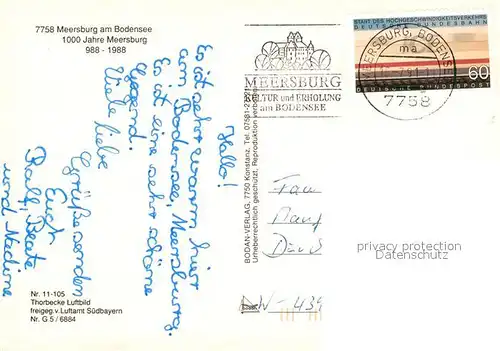 7758 Meersburg am Bodensee
1000 Jahre Meersburg
988 - 1988
Hallo!
Es ist sehr warm hier
am Bodensee, Meersburg.
Es ist eine sehr schöne
Gegend!
Viele liebe
Grüße senden
Euch
Ralf, Beate
und Nadine
Nr. 11-105
Thorbecke Luftbild
freigeg. v. Luftamt Südbayern
Nr. G 5 / 6884
BODAN-VERLAG, 7750 Konstanz, Tel. 07531-2
Urheberrechtlich geschützt. Reproduktion verboten
MEERSBURG
KULTUR und ERHOLUNG
am BODENSEE
START DES HOCHGESCHWINDIGKEITSVERKEHRS
DEUTSCHE BUNDESBAHN
60
DEUTSCHE BUNDESPOST
MEERSBURG, BODENSEE
ma
7758
Frau
privacy protection
Datenschutz